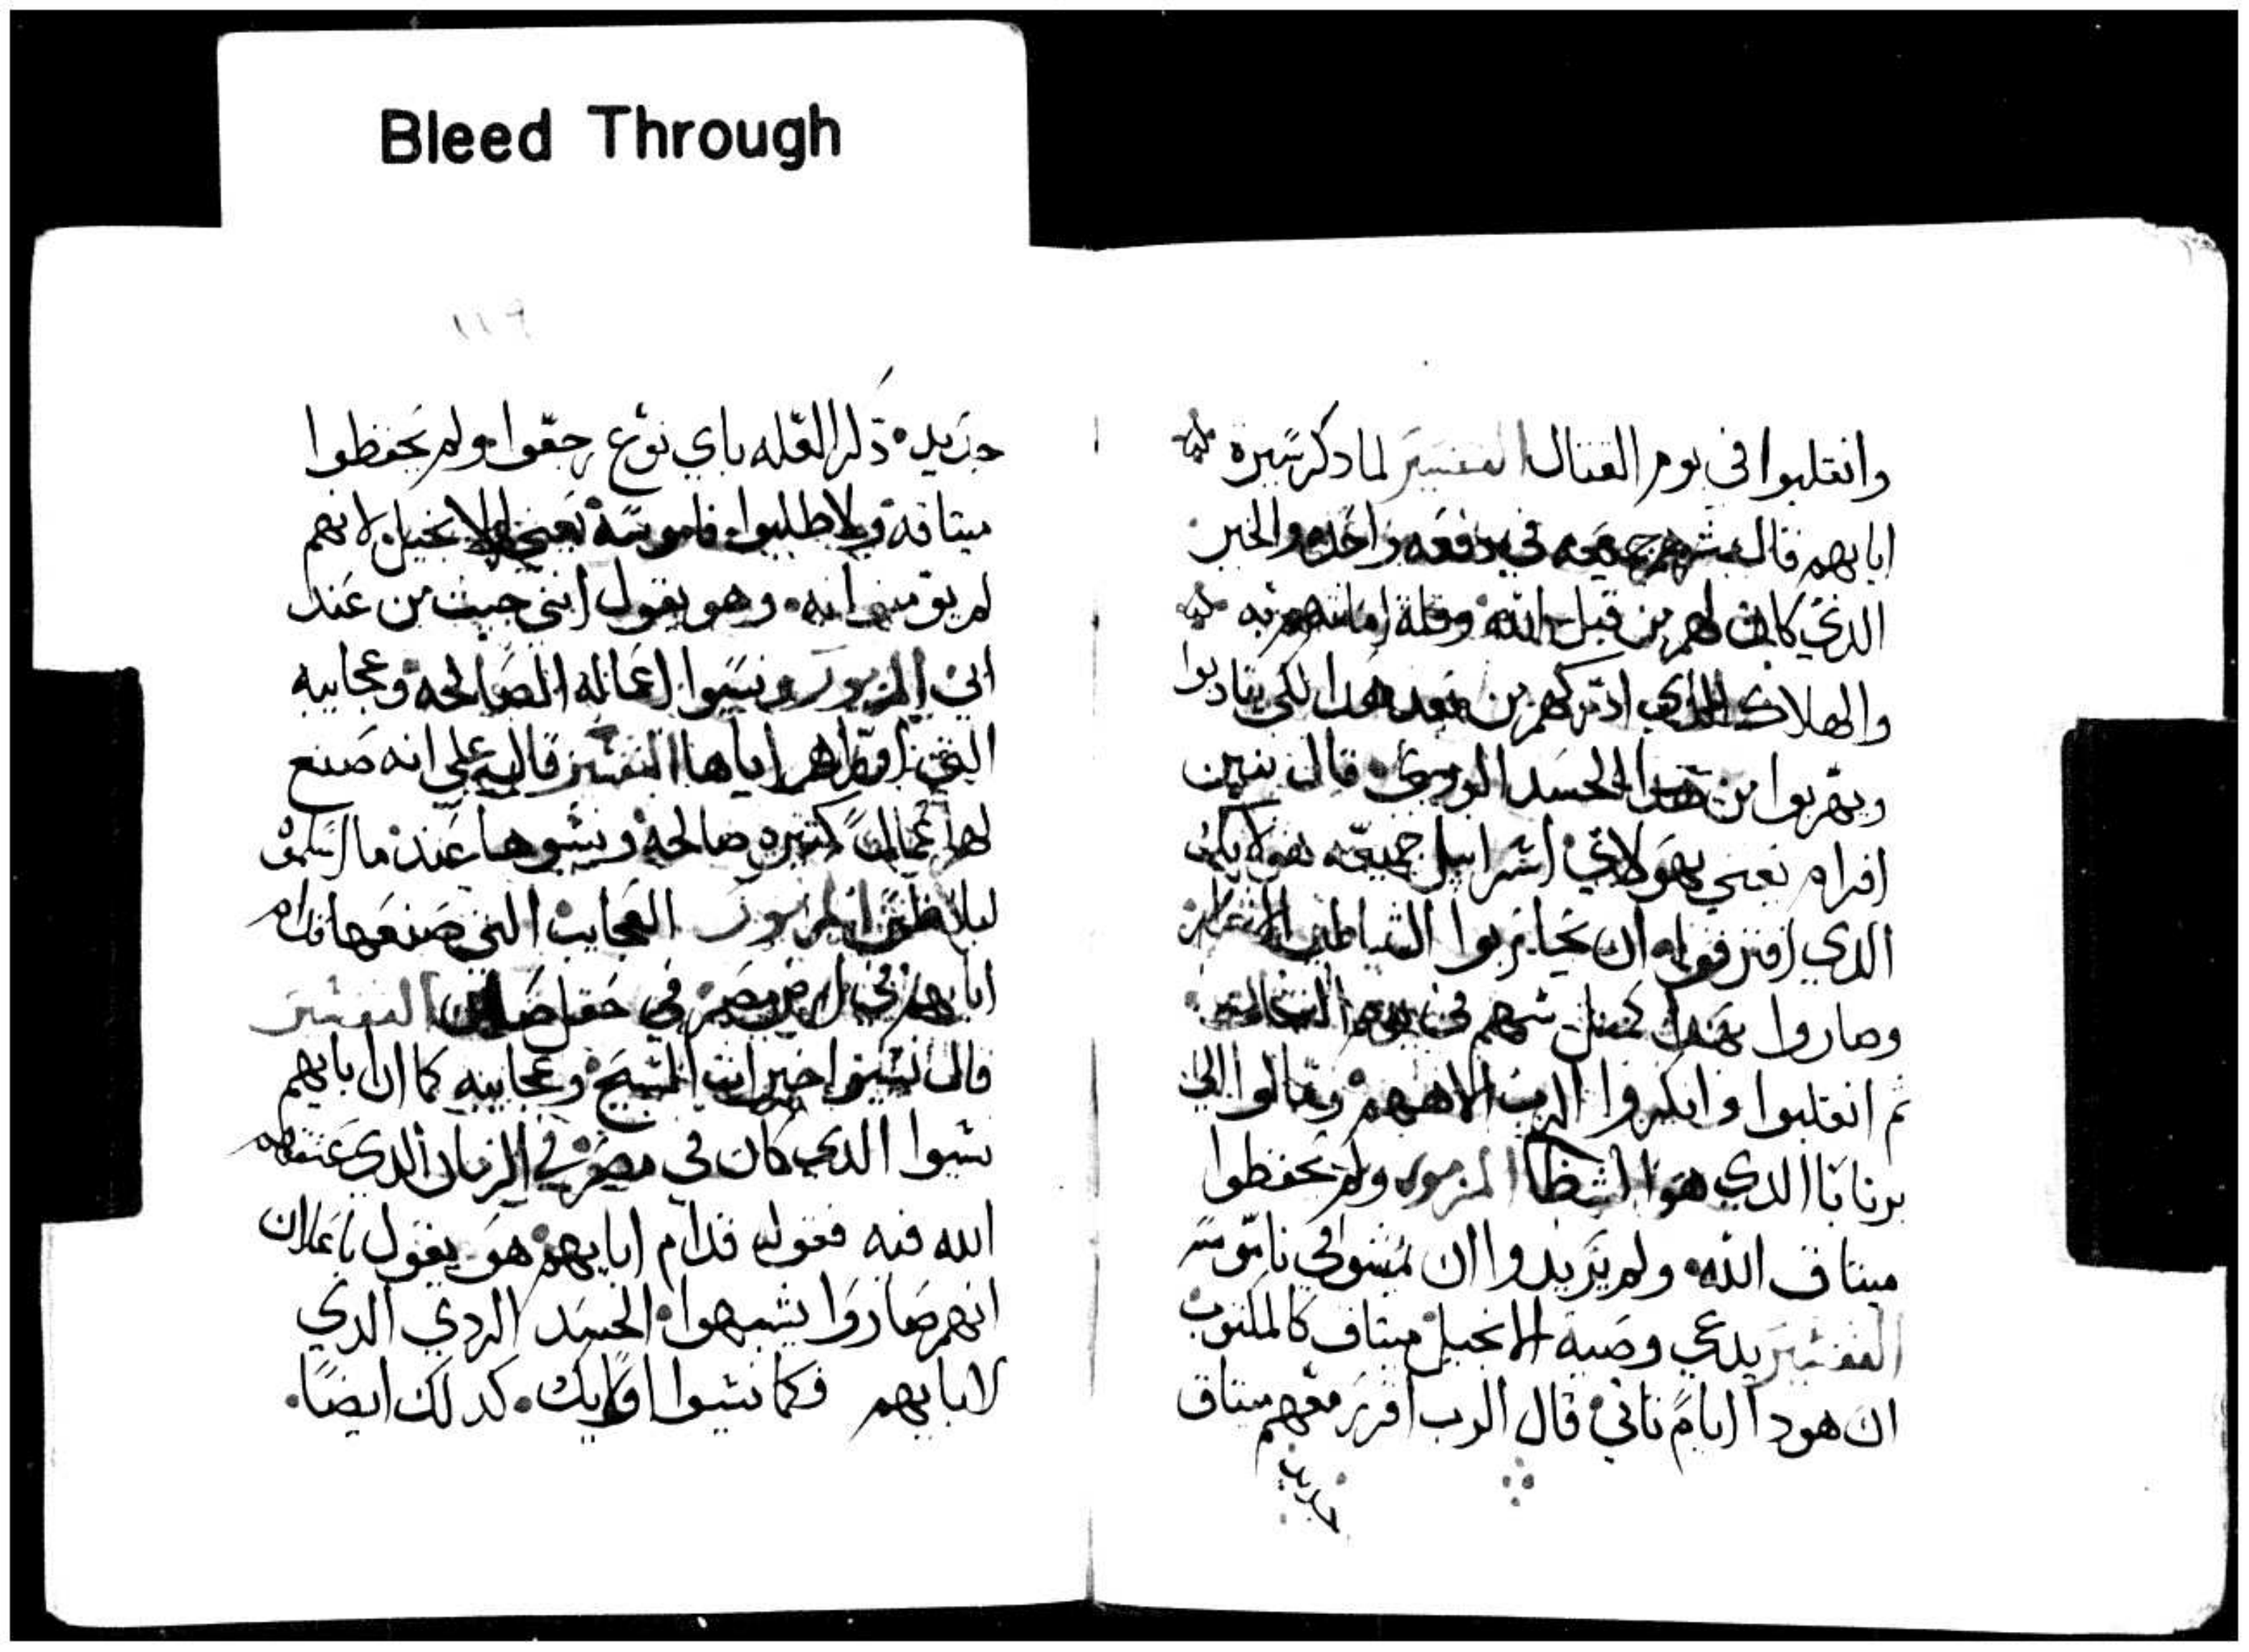 Bleed Through
وانقلبوا في يوم القتال المفسر لما ذكر سيرة
ابايهم قال جميعه في دفعه واحده والخبر
الذي كان لهم من قبل الله وقلة امانتهم به
والهلاك الذي ادركهم من بعد هدا لكي يتادبوا
ويهربوا من هدا الحسد الردي قال بنين
افرام يعني بهولاي اسراييل جميعه هولايك
الدي افترقوا ان يحاربوا الشياطين
وصاروا بهدا كمثل سهم في
ثم انقلبوا وانكروا الرب الاههم وقالوا الي
برنابا الدي هو المزمور ولم يحفظوا
ميتاق الله ولم يريدوا ان يمشوا في ناموسه
المفسر يدعي وصية الانجيل ميتاق كالمكتوب
ان هودا ايام تاتي قال الرب اقرر معهم ميتاق
جديد
١١٩
جديد دكر العله باي نوع حقوا ولم يحفظوا
ميتاقه ولا طلبوا ناموسه يعني الانجيل لانهم
لم يومنوا به وهو يقول انني جيت من عند
ابي المزمور ونسوا اعماله الصالحه وعجايبه
التي اراهم اياها المفسر قال علي انه صنع
اعمال كتيره صالحه ونسوها عند ما
المزمور العجايب التي صنعها قدام
ابايهم في ارض مصر في حقل صاعن المفسر
قال نسوا خيرات المسيح وعجايبه كما ان ابايهم
نسوا الدي كان في مصر في الزمان الدي عتقهم
الله فيه فقوله قدام ابايهم هو يقول باعلان
انهم صاروا يشبهوا الحسد الردي الدي
لابايهم فكما نسوا اوليك كدلك ايضا